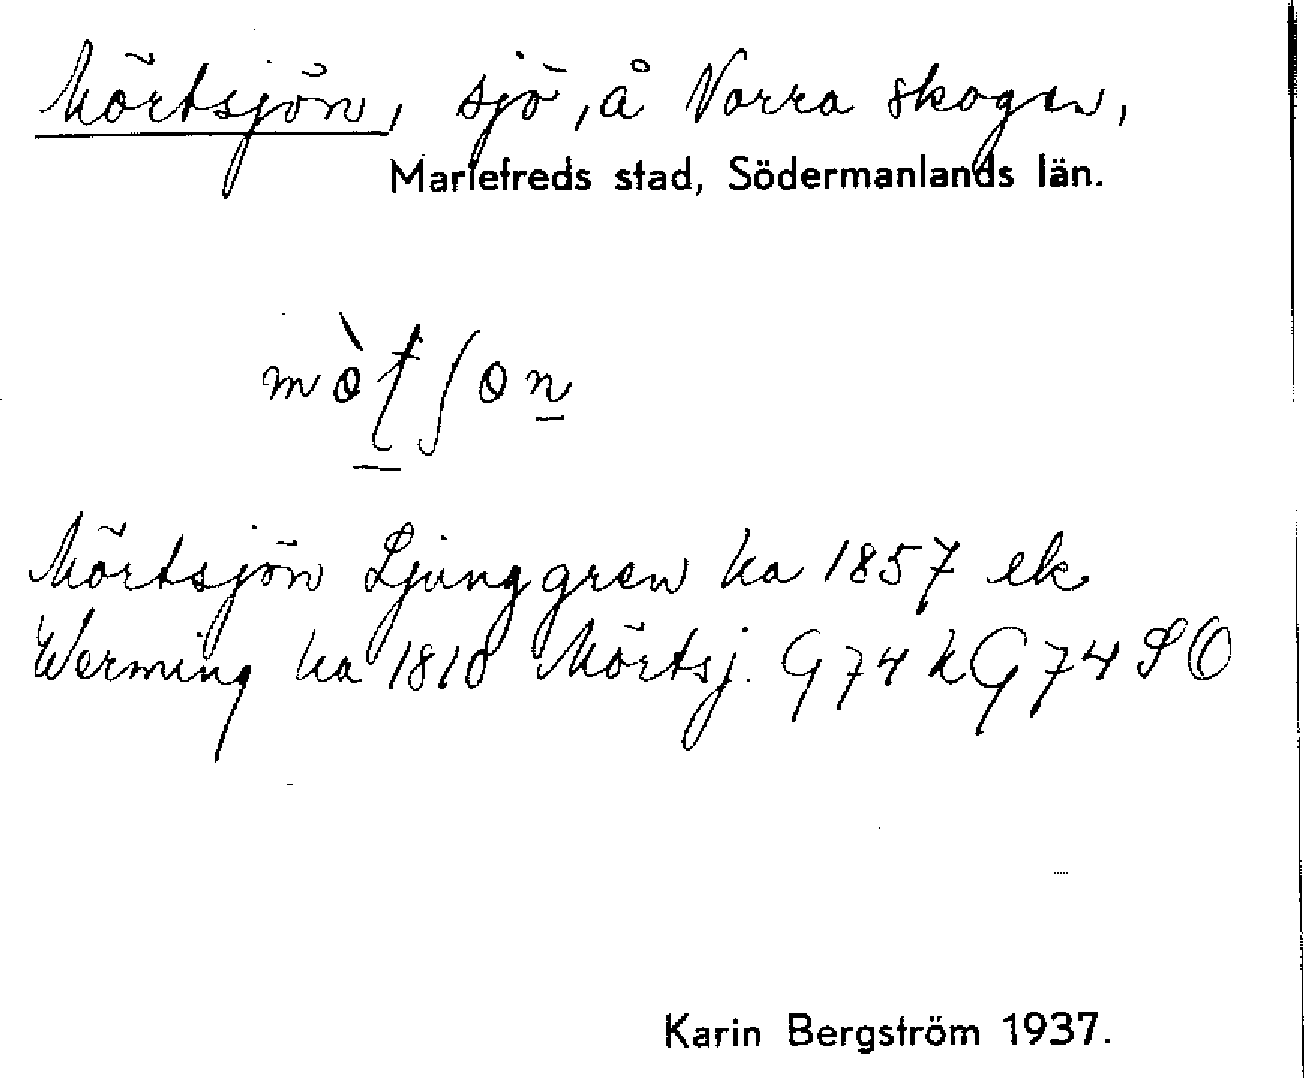 Mörtsjön, sjö, å Norra skogen,
Mariefreds stad, Södermanlands län.
Mörtsjön Ljunggren ka 1857 ek
Werming ka 1810 Mörtsj. G 74 k G 74 SO
Karin Bergström 1937.